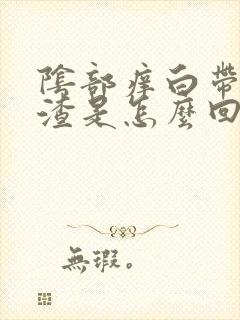 陰部痒白帶
渣是怎麼回
無瑕。